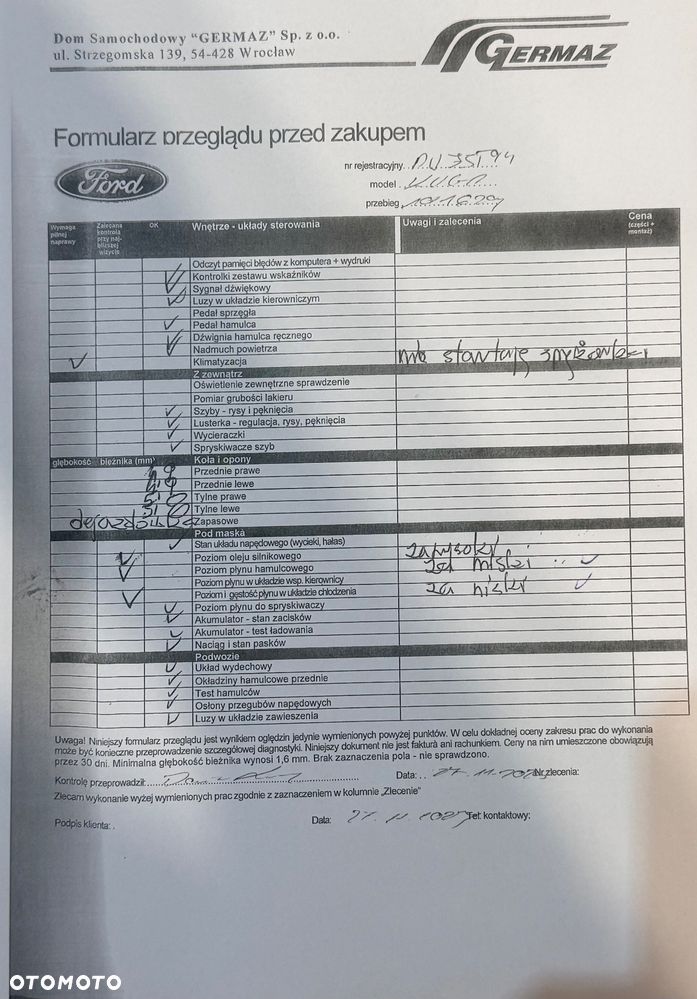 Dom Samochodowy “GERMAZ” Sp. z o.o.
ul. Strzegomska 139, 54-428 Wrocław
GERMAZ
Formularz przeglądu przed zakupem
Ford
nr rejestracyjny
model KUGA
przebieg
Wymaga pilnej naprawy
Zalecana kontrola przy najbliższej wizycie
OK
Wnętrze - układy sterowania
Uwagi i zalecenia
Cena (części + montaż)
Odczyt pamięci błędów z komputera + wydruki
Kontrolki zestawu wskaźników
Sygnał dźwiękowy
Luzy w układzie kierowniczym
Pedał sprzęgła
Pedał hamulca
Dźwignia hamulca ręcznego
Nadmuch powietrza
Klimatyzacja
Z zewnątrz
Oświetlenie zewnętrzne sprawdzenie
Pomiar grubości lakieru
Szyby - rysy i pęknięcia
Lusterka - regulacja, rysy, pęknięcia
Wycieraczki
Spryskiwacze szyb
głębokość bieżnika (mm)
Koła i opony
Przednie prawe
Przednie lewe
Tylne prawe
Tylne lewe
dojazdówka Zapasowe
Pod maską
Stan układu napędowego (wycieki, hałas)
Poziom oleju silnikowego
Poziom płynu hamulcowego za niski
Poziom płynu w układzie wsp. kierownicy
Poziom i gęstość płynu w układzie chłodzenia za niski
Poziom płynu do spryskiwaczy
Akumulator - stan zacisków
Akumulator - test ładowania
Naciąg i stan pasków
Podwozie
Układ wydechowy
Okładziny hamulcowe przednie
Test hamulców
Osłony przegubów napędowych
Luzy w układzie zawieszenia
Uwaga! Niniejszy formularz przeglądu jest wynikiem oględzin jedynie wymienionych powyżej punktów. W celu dokładnej oceny zakresu prac do wykonania
może być konieczne przeprowadzenie szczegółowej diagnostyki. Niniejszy dokument nie jest fakturą ani rachunkiem. Ceny na nim umieszczone obowiązują
przez 30 dni. Minimalna głębokość bieżnika wynosi 1,6 mm. Brak zaznaczenia pola - nie sprawdzono.
Kontrolę przeprowadził: Data: Nr zlecenia:
Zlecam wykonanie wyżej wymienionych prac zgodnie z zaznaczeniem w kolumnie „Zlecenie”
Podpis klienta: Data: Tel: kontaktowy:
OTOMOTO